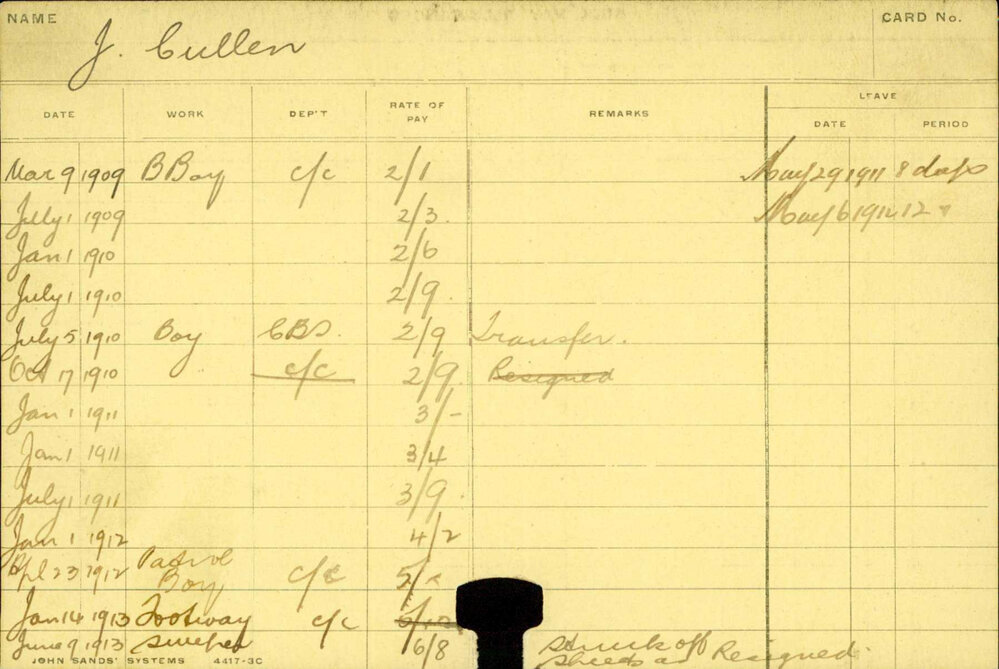 NAME J. Cullen CARD No.
LEAVE
DATE WORK DEP'T RATE OF PAY REMARKS DATE PERIOD
Mar 9 1909 BBoy c/c 2/1 May 29 1911 8 days
July 1 1909 2/3 May 6 1912 12 "
Jan 1 1910 2/6
July 1 1910 2/9
July 5 1910 Boy CBD. 2/9 Transfer.
Oct 17 1910 c/c 2/9 Resigned
Jan 1 1911 3/-
Jan 1 1911 3/4
July 1 1911 3/9
Jan 1 1912 4/2
Apl 23 1912 Patrol Boy c/c 5/-
Jan 14 1913 Footway c/c
June 9 1913 sweeper 6/8 Struck off
Sheets as Resigned.
JOHN SANDS' SYSTEMS 4417-3C